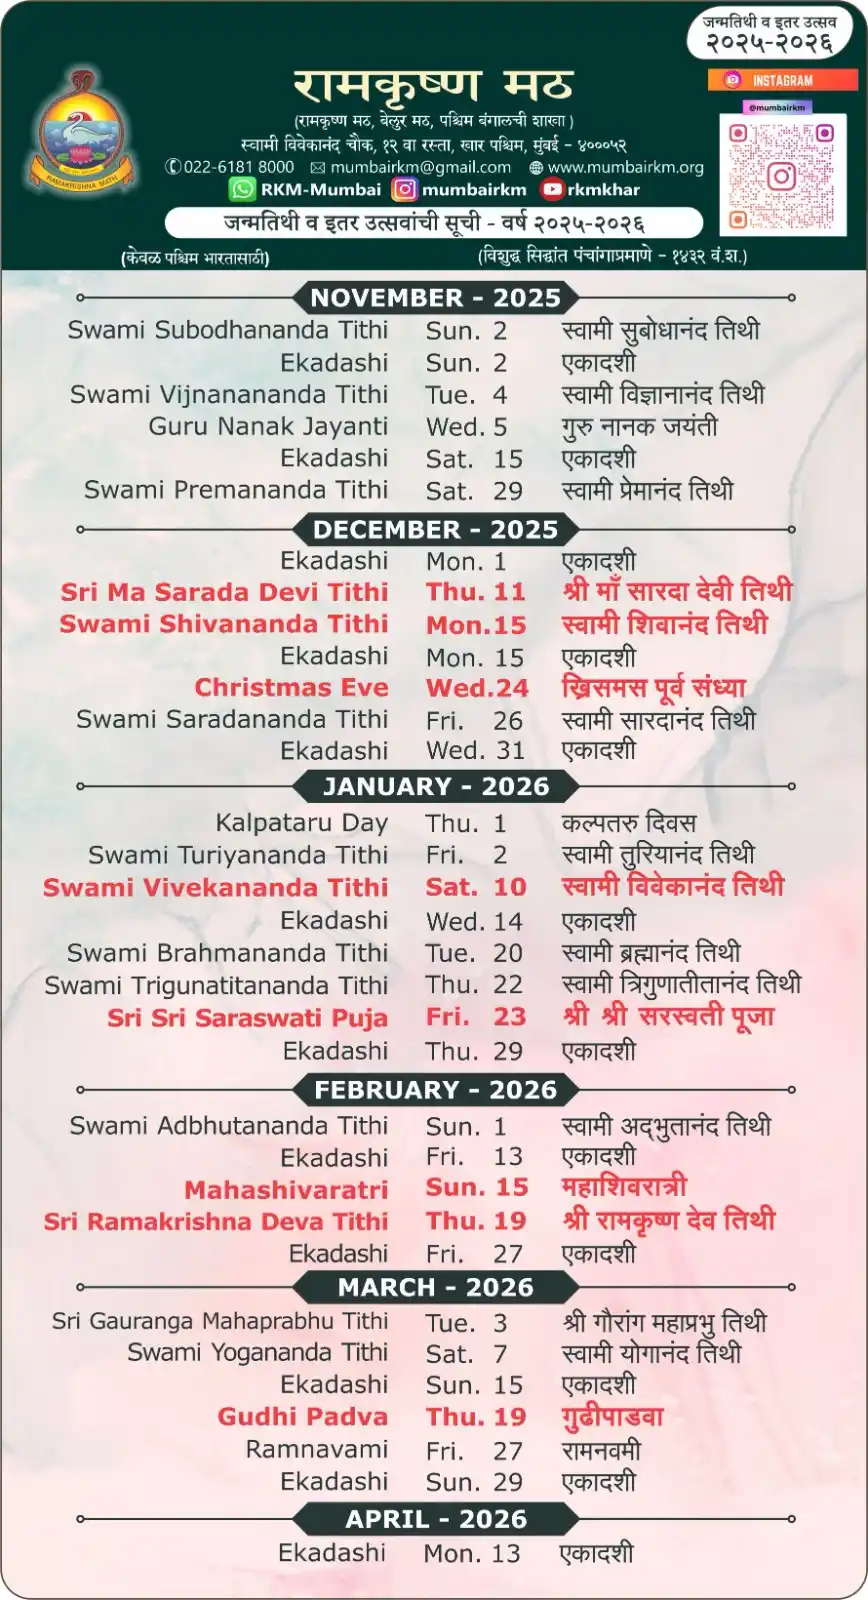 जन्मतिथी व इतर उत्सव
२०२५-२०२६
INSTAGRAM
@mumbairkm
रामकृष्ण मठ
(रामकृष्ण मठ, बेलुर मठ, पश्चिम बंगालची शाखा)
स्वामी विवेकानंद चौक, १२ वा रस्ता, खार पश्चिम, मुंबई - ४०००५२
022-6181 8000 mumbairkm@gmail.com www.mumbairkm.org
RKM-Mumbai mumbairkm rkmkhar
RAMAKRISHNA MATH
जन्मतिथी व इतर उत्सवांची सूची - वर्ष २०२५-२०२६
(केवळ पश्चिम भारतासाठी) (विशुद्ध सिद्धांत पंचांगाप्रमाणे - १४३२ वं.श.)
NOVEMBER - 2025
Swami Subodhananda Tithi Sun. 2 स्वामी सुबोधानंद तिथी
Ekadashi Sun. 2 एकादशी
Swami Vijnanananda Tithi Tue. 4 स्वामी विज्ञानानंद तिथी
Guru Nanak Jayanti Wed. 5 गुरु नानक जयंती
Ekadashi Sat. 15 एकादशी
Swami Premananda Tithi Sat. 29 स्वामी प्रेमानंद तिथी
DECEMBER - 2025
Ekadashi Mon. 1 एकादशी
Sri Ma Sarada Devi Tithi Thu. 11 श्री माँ सारदा देवी तिथी
Swami Shivananda Tithi Mon.15 स्वामी शिवानंद तिथी
Ekadashi Mon. 15 एकादशी
Christmas Eve Wed.24 ख्रिसमस पूर्व संध्या
Swami Saradananda Tithi Fri. 26 स्वामी सारदानंद तिथी
Ekadashi Wed. 31 एकादशी
JANUARY - 2026
Kalpataru Day Thu. 1 कल्पतरु दिवस
Swami Turiyananda Tithi Fri. 2 स्वामी तुरियानंद तिथी
Swami Vivekananda Tithi Sat. 10 स्वामी विवेकानंद तिथी
Ekadashi Wed. 14 एकादशी
Swami Brahmananda Tithi Tue. 20 स्वामी ब्रह्मानंद तिथी
Swami Trigunatitananda Tithi Thu. 22 स्वामी त्रिगुणातीतानंद तिथी
Sri Sri Saraswati Puja Fri. 23 श्री श्री सरस्वती पूजा
Ekadashi Thu. 29 एकादशी
FEBRUARY - 2026
Swami Adbhutananda Tithi Sun. 1 स्वामी अद्‌भुतानंद तिथी
Ekadashi Fri. 13 एकादशी
Mahashivaratri Sun. 15 महाशिवरात्री
Sri Ramakrishna Deva Tithi Thu. 19 श्री रामकृष्ण देव तिथी
Ekadashi Fri. 27 एकादशी
MARCH - 2026
Sri Gauranga Mahaprabhu Tithi Tue. 3 श्री गौरांग महाप्रभु तिथी
Swami Yogananda Tithi Sat. 7 स्वामी योगानंद तिथी
Ekadashi Sun. 15 एकादशी
Gudhi Padva Thu. 19 गुढीपाडवा
Ramnavami Fri. 27 रामनवमी
Ekadashi Sun. 29 एकादशी
APRIL - 2026
Ekadashi Mon. 13 एकादशी